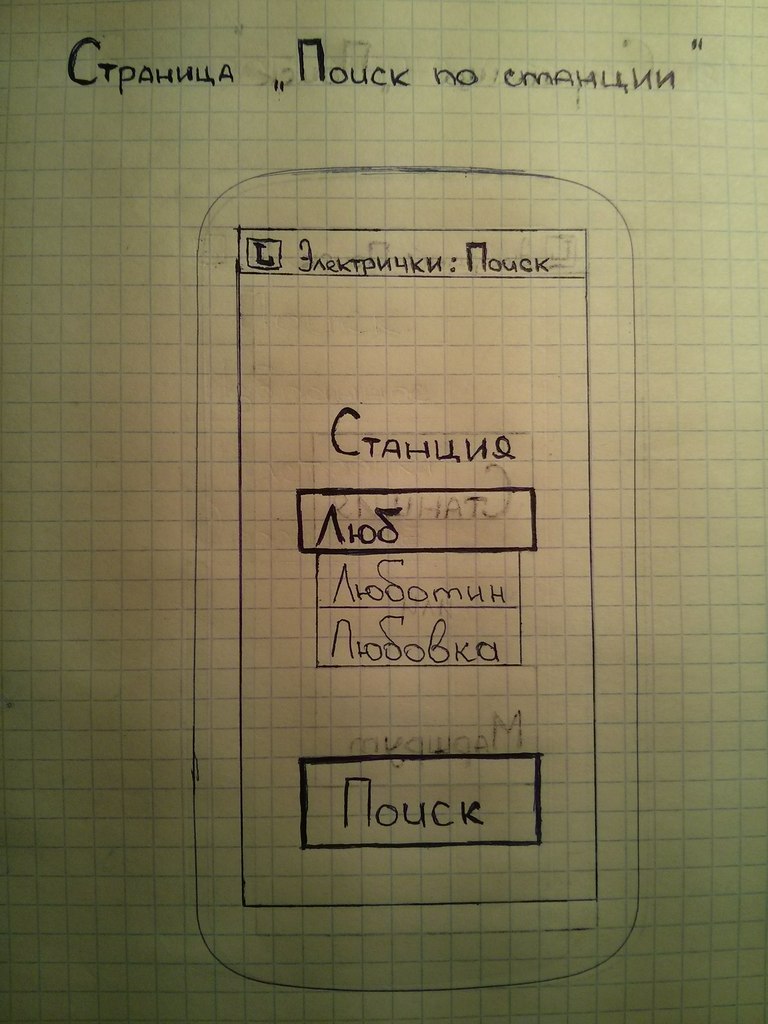 Страница „Поиск по станции"
L Электрички: Поиск
Станция
Люб
Люботин
Любовка
Поиск